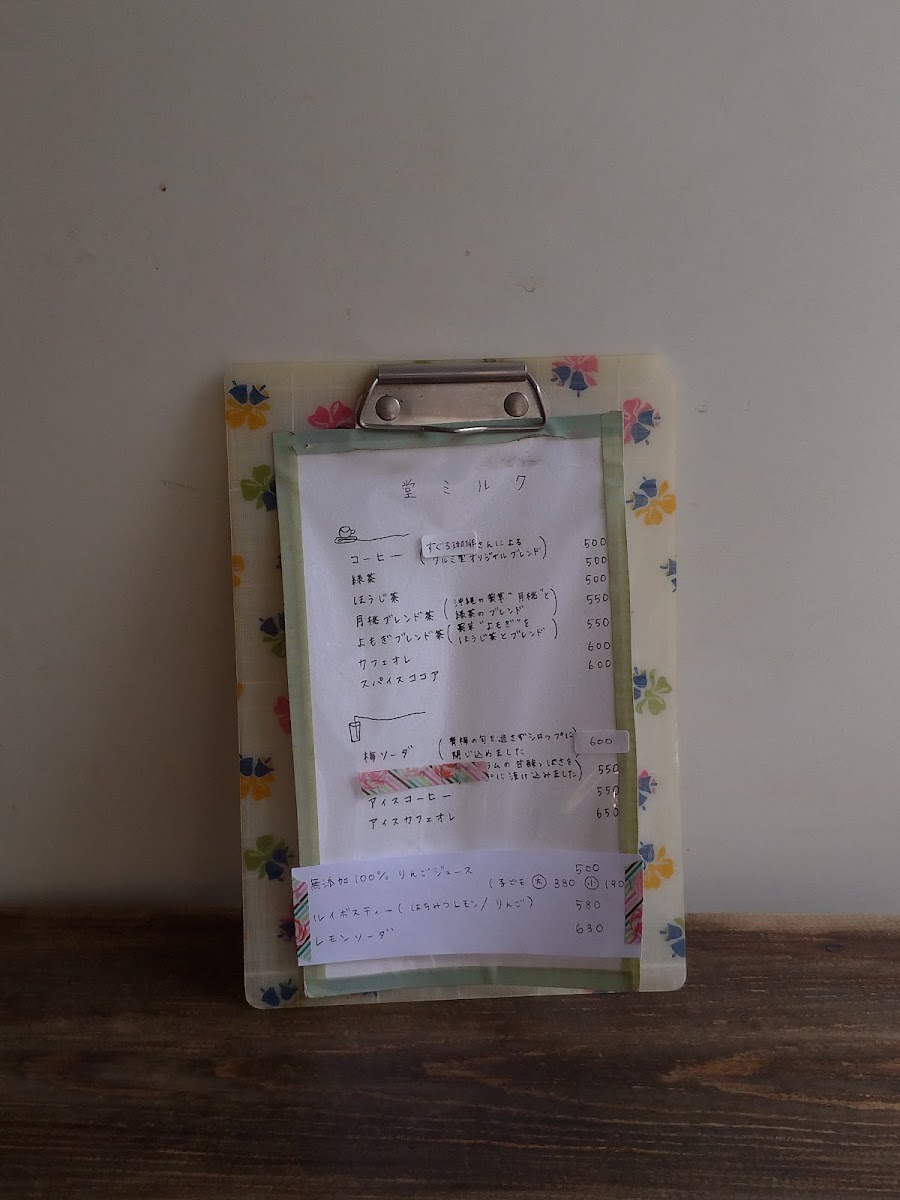 堂ミルク
コーヒー (すぐる珈琲さんによる 500
クルミ堂オリジナルブレンド)
緑茶 500
ほうじ茶 500
月桃ブレンド茶 (沖縄の薬草"月桃"と 550
緑茶のブレンド)
よもぎブレンド茶 (薬草"よもぎ"を 550
ほうじ茶とブレンド)
カフェオレ 600
スパイスココア 600
梅ソーダ (青梅の旬を逃さずシロップに 600
閉じ込めました
ラムの甘酸っぱさを 550
に漬け込みました)
アイスコーヒー 550
アイスカフェオレ 650
無添加100%りんごジュース 500
(子ども 大 380 小 190)
ルイボスティー(はちみつレモン/りんご) 580
レモンソーダ 690